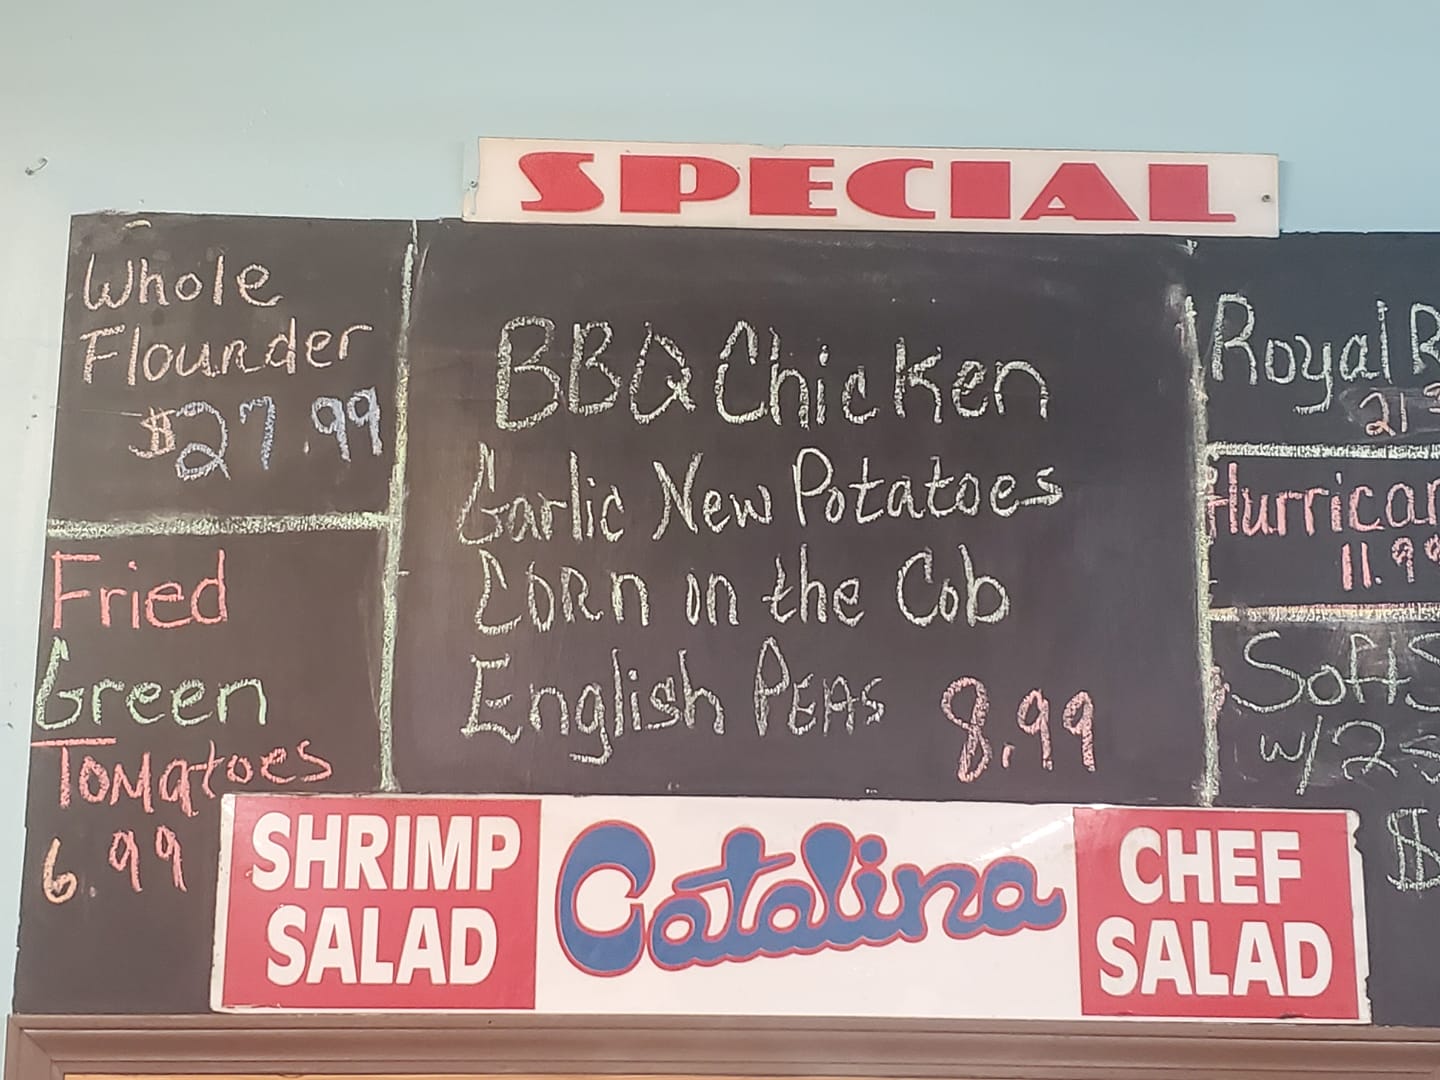 SPECIAL
Whole
Flounder
$27.99
Fried
Green
Tomatoes
6.99
BBQ Chicken
Garlic New Potatoes
Corn on the Cob
English Peas 8.99
Royal R
21
Hurrican
11.99
Soft S
w/2 s
$
SHRIMP
SALAD
Catalina
CHEF
SALAD